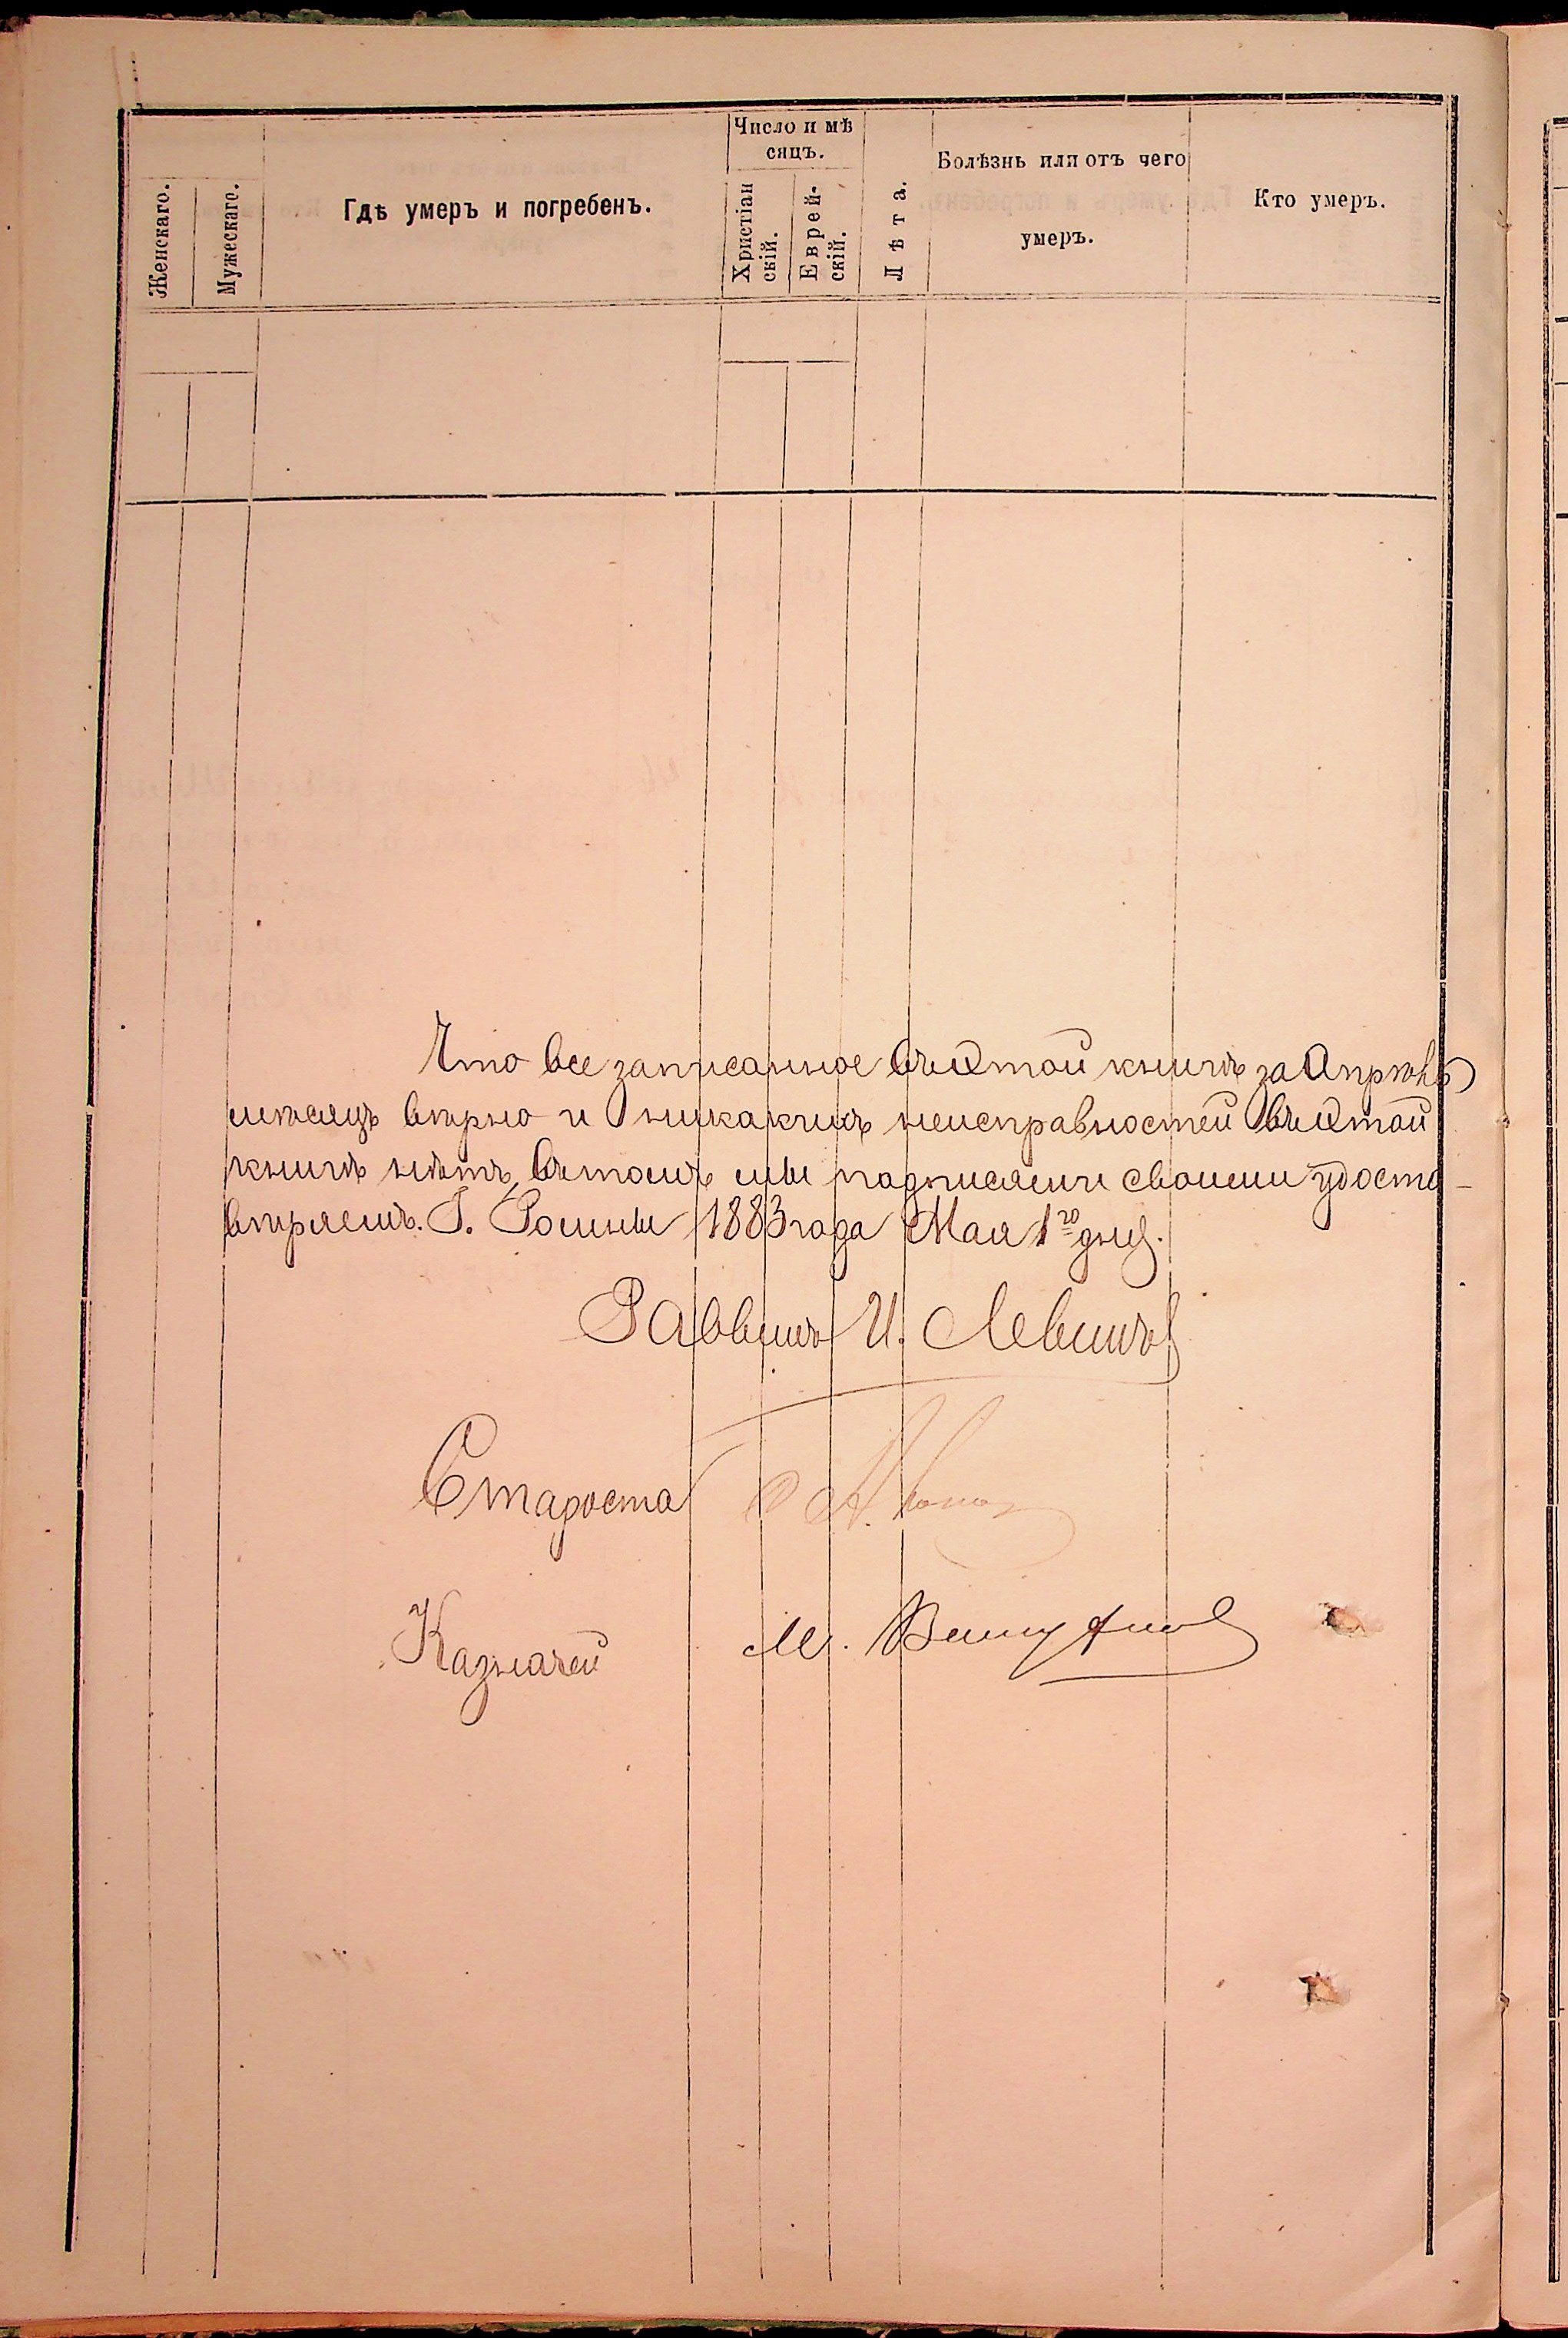 Женскаго.
Мужескаго.
Гдѣ умеръ и погребенъ.
Число и мѣ
сяцъ.
Христіан
скій.
Еврей-
скій.
Лѣта.
Болѣзнь или отъ чего
умеръ.
Кто умеръ.
Что все записанное въ этой книгѣ за Апрѣль
мѣсяцъ вѣрно и никакихъ неисправностей въ этой
книгѣ нѣтъ, въ томъ мы подписями своими удосто-
вѣряемъ. Г. Ромны 1883 года Мая 1го дня.
Раввинъ И. Левинъ
Староста
Казначей М.